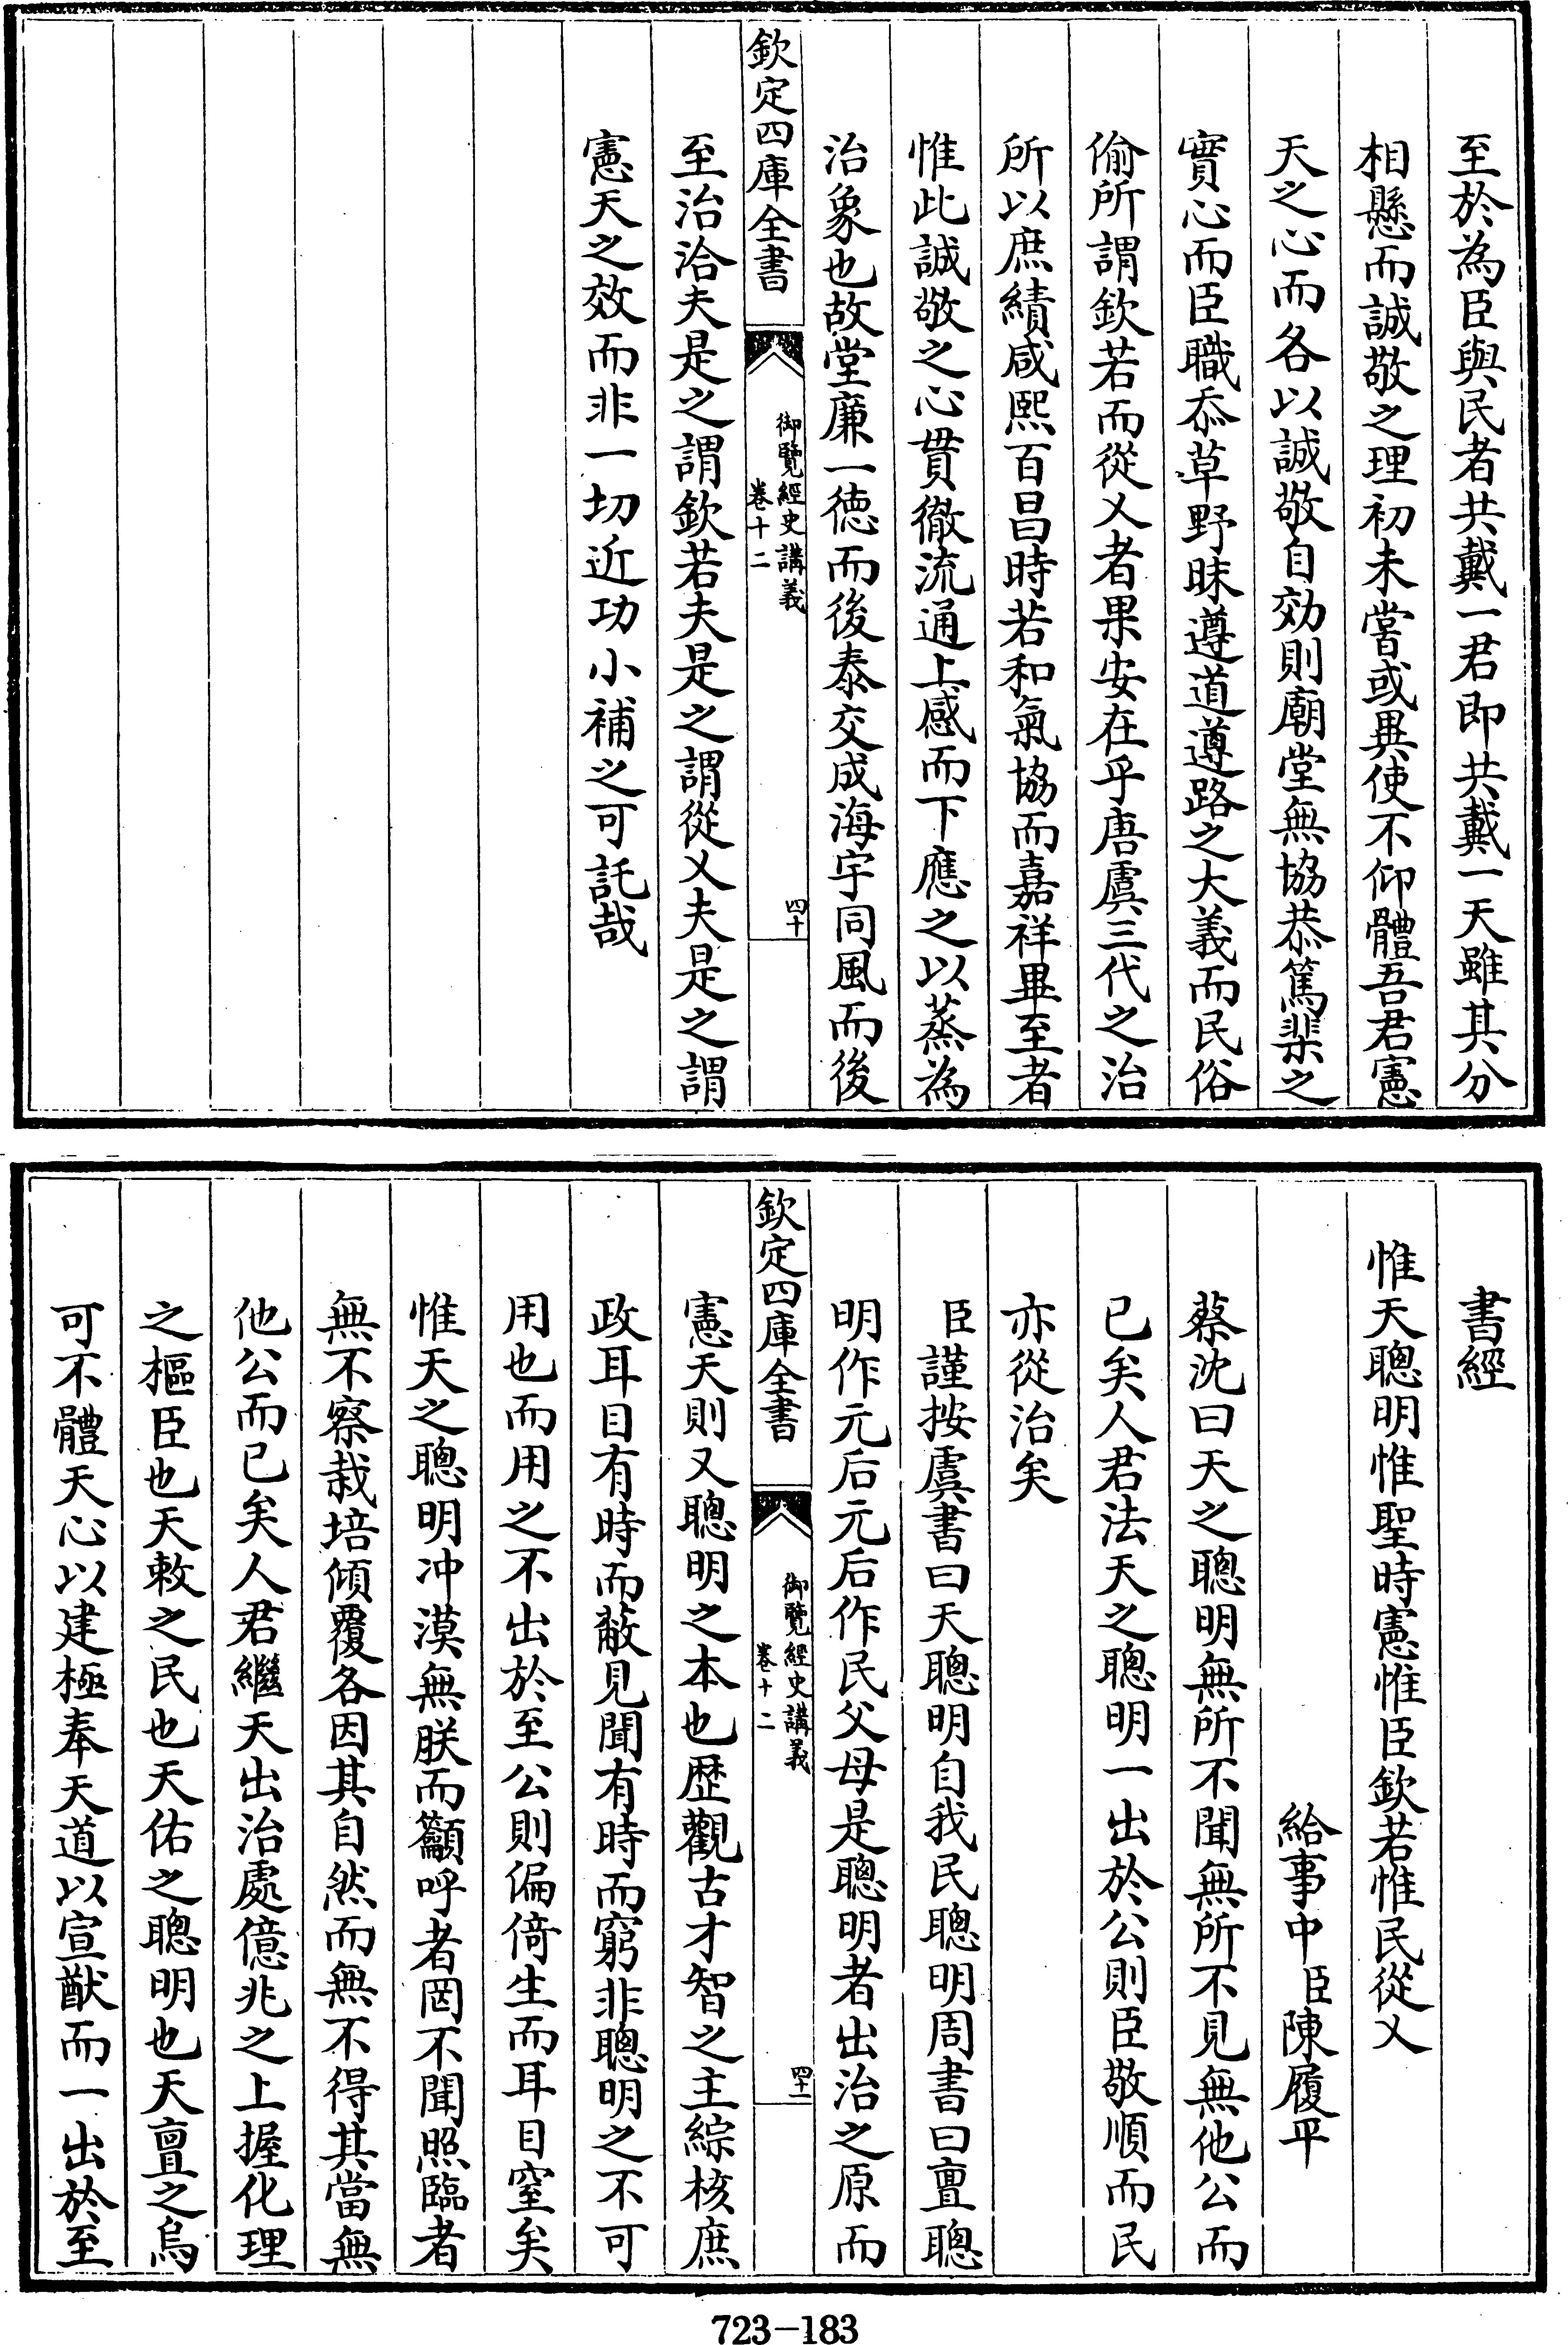 至於為臣與民者共戴一君即共戴一天雖其分
相懸而誠敬之理初未嘗或異使不仰體吾君憲
天之心而各以誠敬自効則廟堂無協恭篤棐之
實心而臣職忝草野昧遵道遵路之大義而民俗
偷所謂欽若而從乂者果安在乎唐虞三代之治
所以庶績咸熙百昌時若和氣協而嘉祥畢至者
惟此誠敬之心貫徹流通上感而下應之以蒸為
治象也故堂廉一徳而後泰交成海宇同風而後
欽定四庫全書
御覽經史講義
卷十二
四十
至治洽夫是之謂欽若夫是之謂從乂夫是之謂
憲天之效而非一切近功小補之可託哉
書經
惟天聰明惟聖時憲惟臣欽若惟民從乂
給事中臣陳履平
蔡沈曰天之聰明無所不聞無所不見無他公而
已矣人君法天之聰明一出於公則臣敬順而民
亦從治矣
臣謹按虞書曰天聰明自我民聰明周書曰亶聰
明作元后元后作民父母是聰明者出治之原而
欽定四庫全書
御覽經史講義
卷十二
四十一
憲天則又聰明之本也歴觀古才智之主綜核庶
政耳目有時而蔽見聞有時而窮非聰明之不可
用也而用之不出於至公則偏倚生而耳目窒矣
惟天之聰明冲漠無朕而籲呼者罔不聞照臨者
無不察栽培傾覆各因其自然而無不得其當無
他公而已矣人君繼天出治處億兆之上握化理
之樞臣也天敕之民也天佑之聰明也天亶之烏
可不體天心以建極奉天道以宣猷而一出於至
723-183